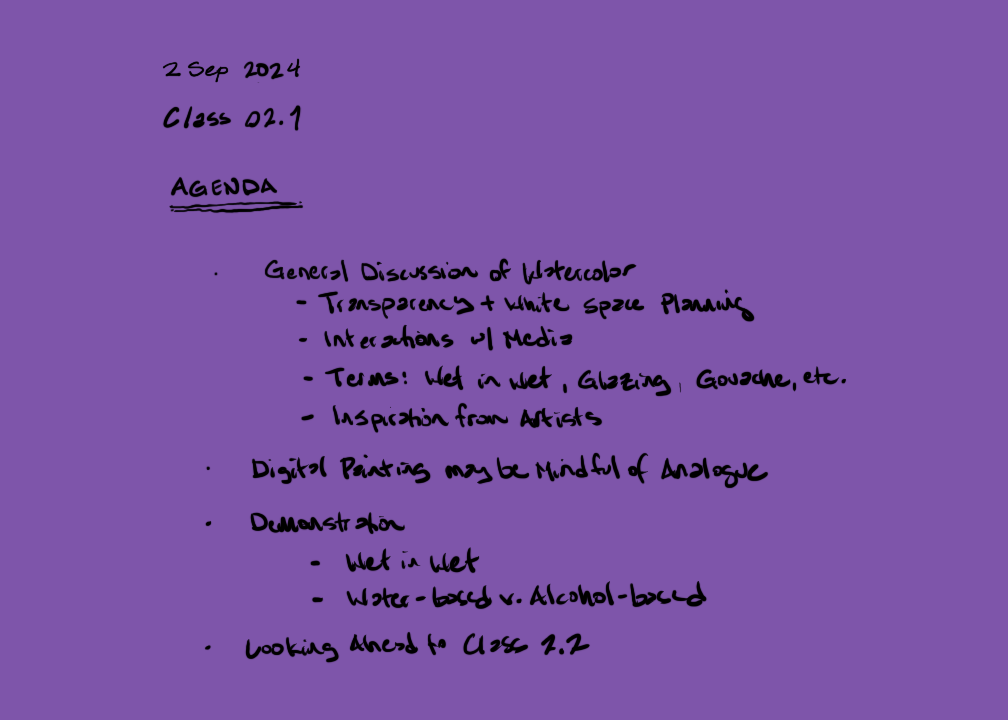 2 Sep 2024
Class 02.1
AGENDA
· General Discussion of Watercolor
- Transparency + White Space Planning
- Interactions w/ Media
- Terms: Wet in Wet, Glazing, Gouache, etc.
- Inspiration from Artists
· Digital Painting may be Mindful of Analogue
· Demonstration
- Wet in Wet
- Water-based v. Alcohol-based
· Looking Ahead to Class 2.2